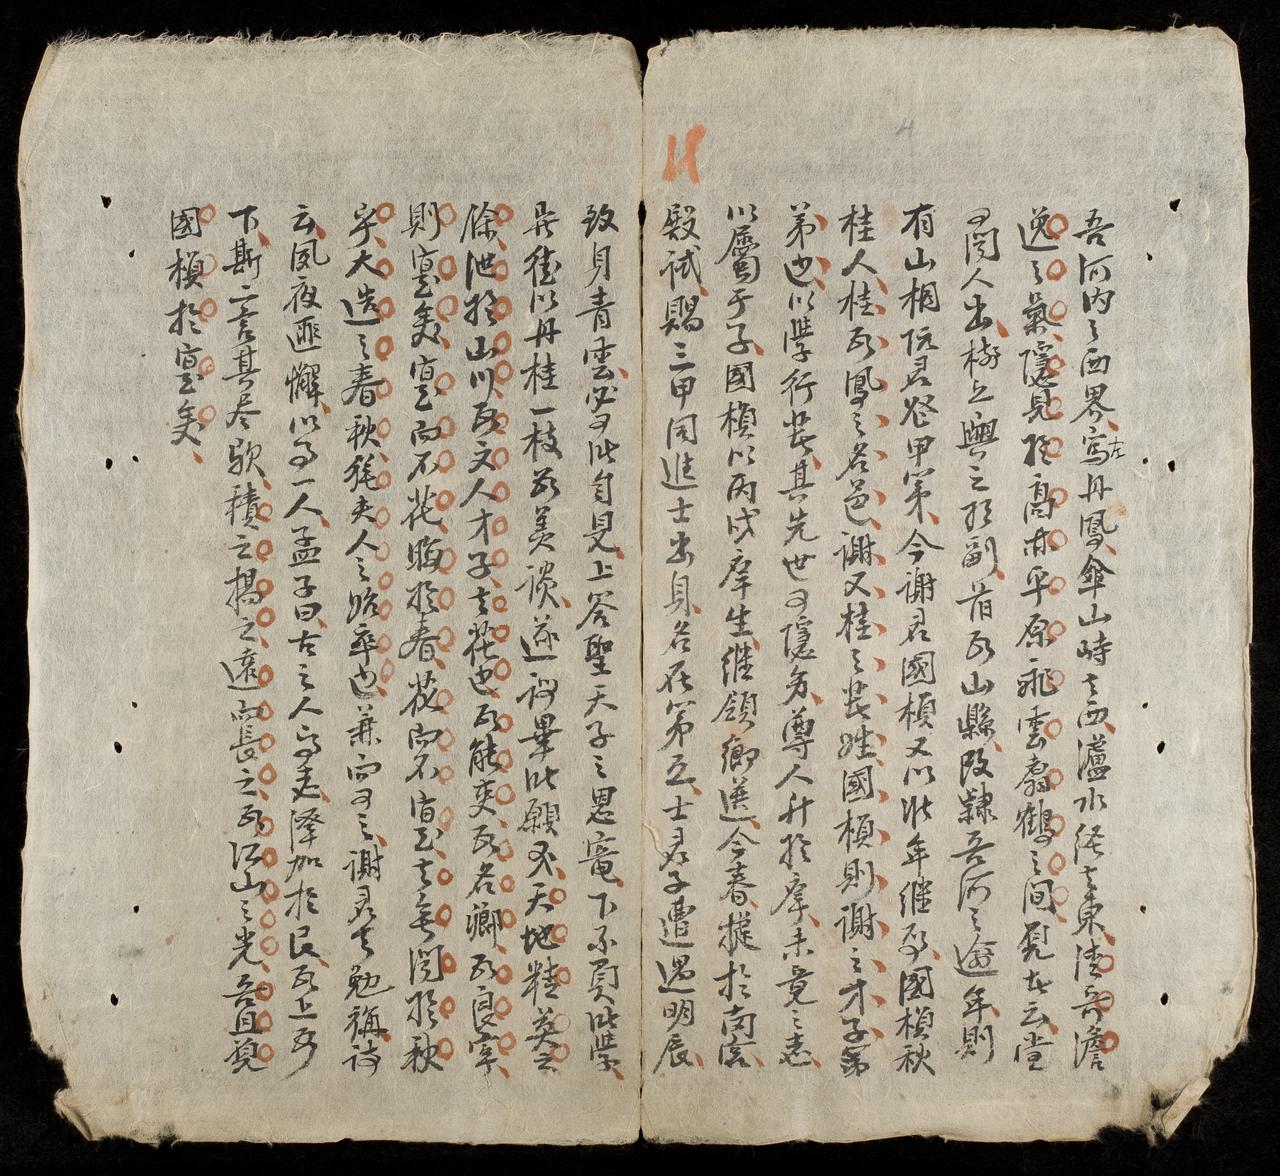 吾河内之西界寫丹鳳傘山峙之西瀘水經之東清奇澹
左
逸之氣隱見於高林平原飛雲翥鶴之間覔者云堂
有閥人出樹立興之將副首为山縣改隸吾河之逾年則
有山桐阮君登甲第今謝君國楨又以比年繼登國楨秋
桂人桂为鳳之名邑謝又桂之著姓國楨則謝之才子弟
弟也以學行著其先世有隱务尊人升於庠未竟之志
以屬于子國楨以丙戌庠生継領鄉選今春擢於南宮
殿試賜三甲同進士出身名在第五士君子遭遇明辰
致身青雲必有所自見上答聖天子之恩寵下不負此學
豈徒以丹桂一枝为美談遂謂畢此願哉天地精英之
餘泄於山川为文人才子之花也而能変为名卿为良宰
則寔矣寔而不花晦於春花而不寔之無閱於秋
宇大造之春秋猶夫人之貽率也兼而有之謝君之勉稱詩
云夙夜匪懈以事一人孟子曰古之人得志澤加於民为上为
下斯言其尽歟積之揚之遠而長之为江山之光吾且覔
國楨於寔矣